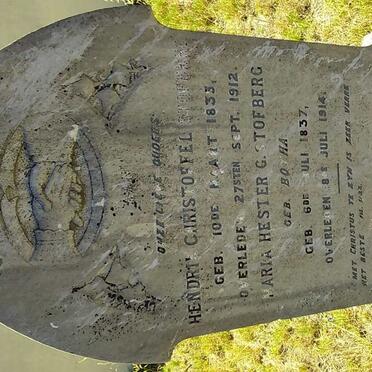 ONZE LIEVE OUDERS
HENDRIK CHRISTOFFEL STOFBERG
GEB. 10DE MAART 1833,
OVERLEDEN 27STEN SEPT. 1912
MARIA HESTER C. STOFBERG
GEB. BOTHA
GEB. 6DE JULI 1837,
OVERLEDEN 8STE JULI 1914.
MET CHRISTUS TE ZYN IS ZEER VERRE
HET BESTE